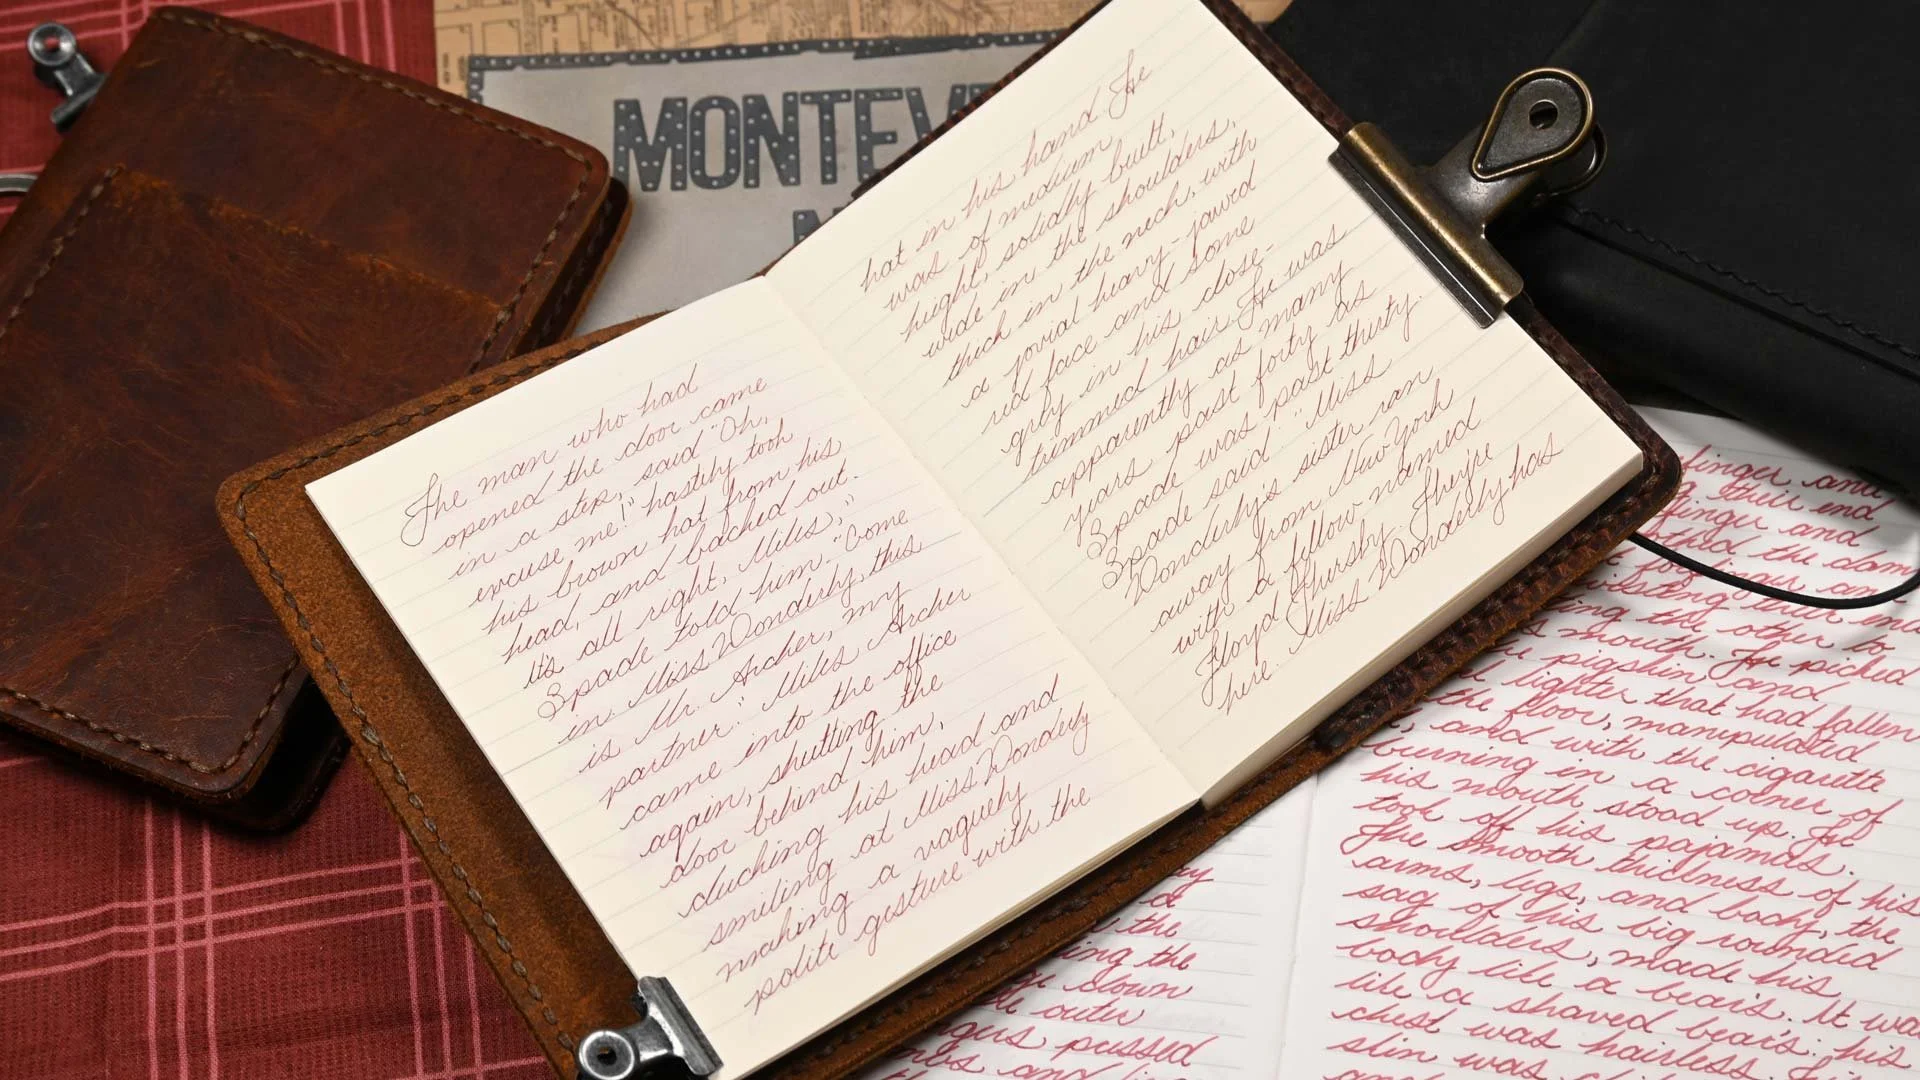 MONTEV
The man who had
opened the door came
in a step, said "Oh,
excuse me!" hastily took
his brown hat from his
head, and backed out.
It's all right, Miles,"
Spade told him. "Come
in. Miss Wonderly, this
is Mr. Archer, my
partner." Miles Archer
came into the office
again, shutting the
door behind him,
ducking his head and
smiling at Miss Wonderly
making a vaguely
polite gesture with the
hat in his hand. He
was of medium
height, solidly built,
wide in the shoulders,
thick in the neck, with
a jovial heavy-jawed
red face and some
grey in his close-
trimmed hair. He was
apparently as many
years past forty as
Spade was past thirty.
Spade said: "Miss
Wonderly's sister ran
away from New York
with a fellow named
Floyd Thursby. They're
here. Miss Wonderly has
finger and
their end
finger and
the dam
forefinger an
twisting their en
ing the other to
s mouth. He picked
pigskin, and
lighter that had fallen
the floor, manipulated
, and with the cigarette
burning in a corner of
his mouth stood up. He
took off his pajamas.
The smooth thickness of his
arms, legs, and body, the
sag of his big rounded
shoulders, made his
body like a bear's. It was
like a shaved bear's: his
chest was hairless.
skin was
the
ing the
down
outer
passed
and